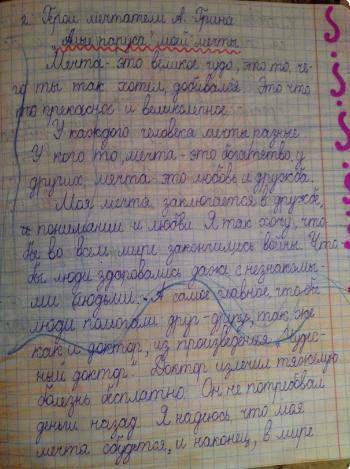 2. Герои мечтатели А. Грина
Алые паруса моей мечты
Мечта- это великое чудо, это то, че-
го ты так хотел, добивался. Это что
то прекрасное и великолепное.
У каждого человека мечты разные
У кого то, мечта- это богатство, у
других, мечта- это любовь и дружба.
Моя мечта заключается в дружбе,
в понимании и любви. Я так хочу, что-
бы во всем мире закончились войны. Что
бы люди здоровались даже с незнакомы-
ми людьми. А самое главное, что бы
люди помогали друг-другу, так же
как и доктор, из произведения "Чудес-
ный доктор". Доктор излечил тяжелую
болезнь бесплатно. Он не потребовал
деньги назад. Я надеюсь, что моя
мечта сбудется, и наконец, в мире